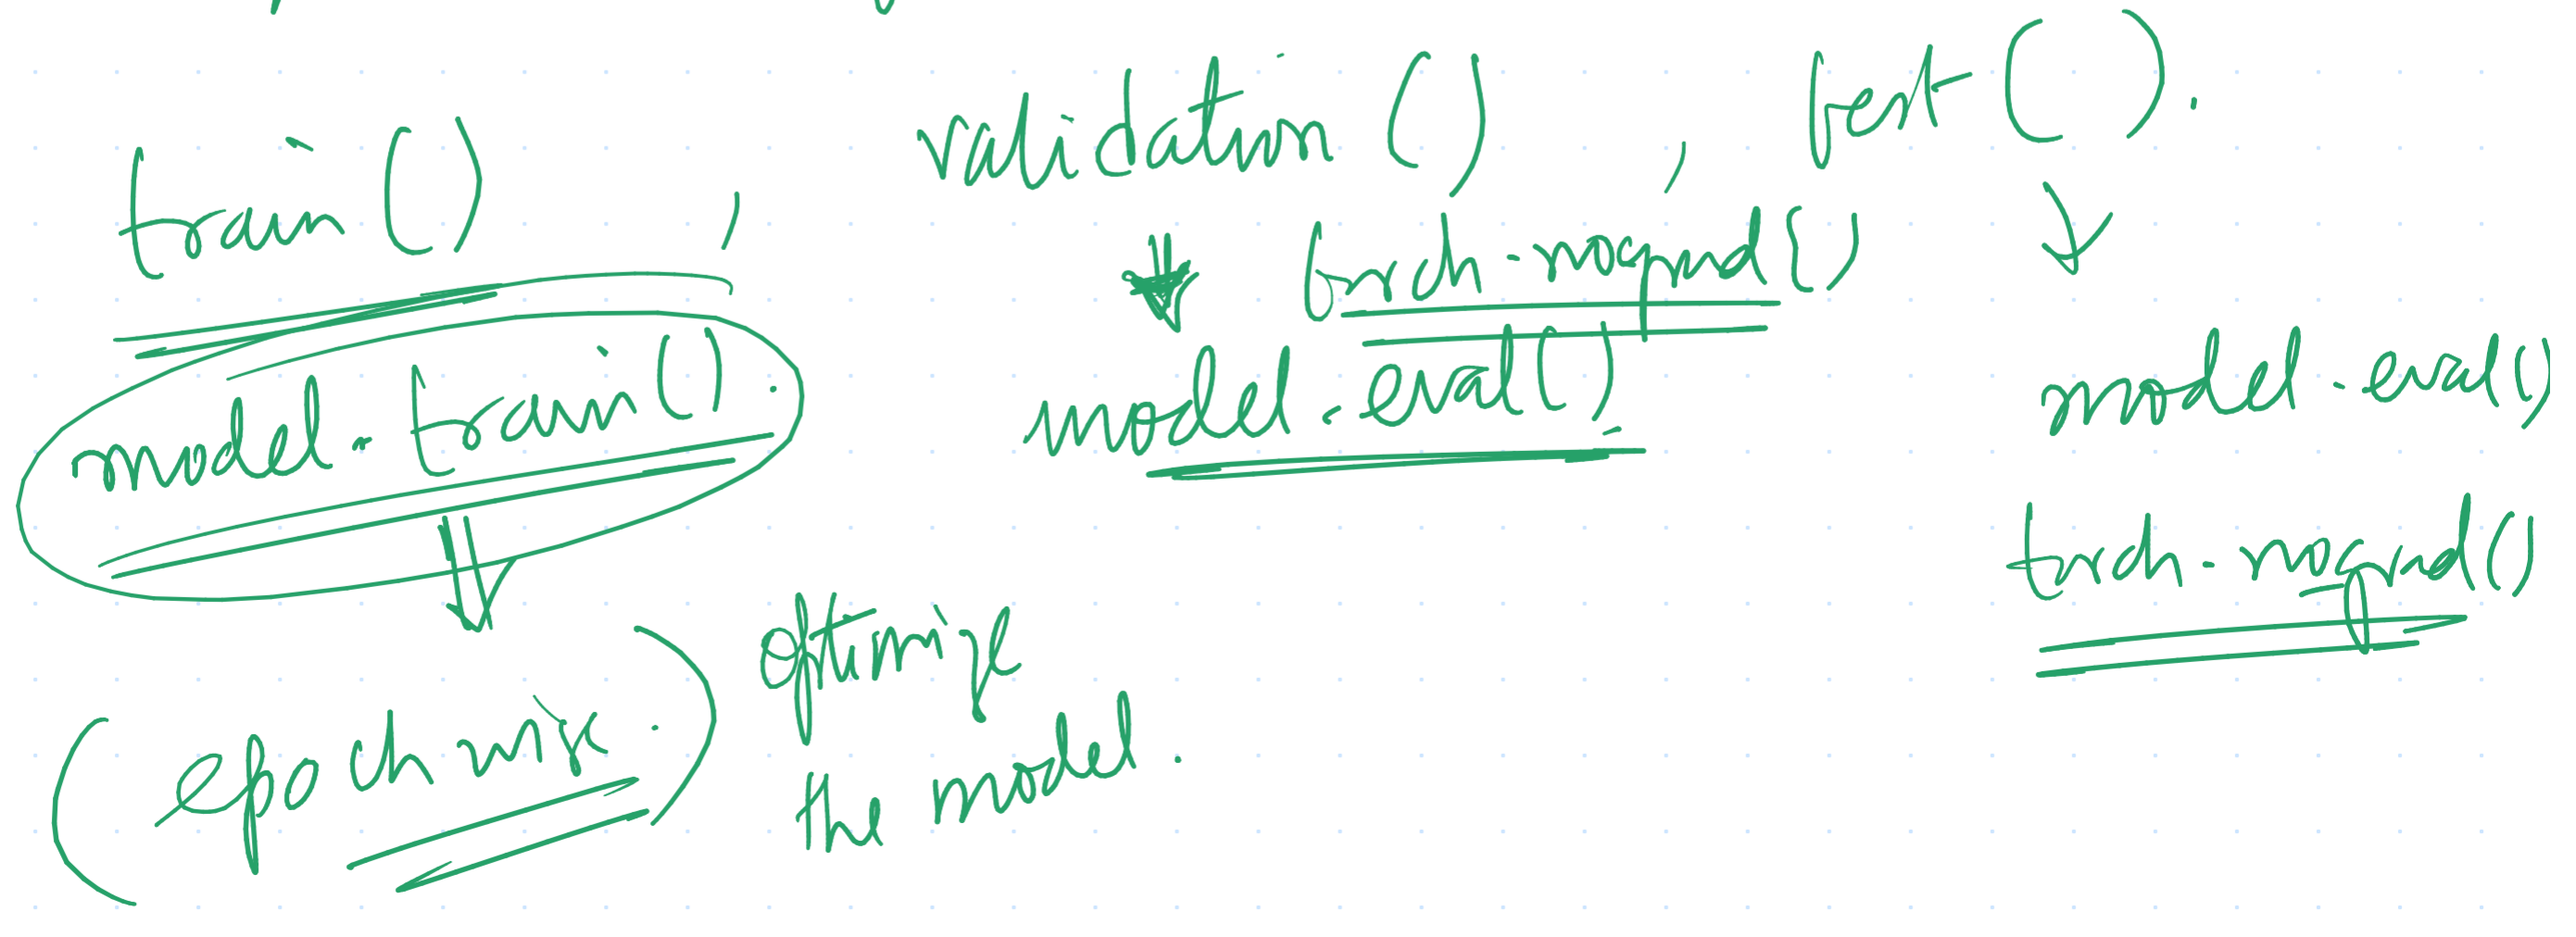 train() , validation () , test ().
torch.nograd()
model.train(). model.eval() model.eval()
torch.nograd()
(epoch wise.) optimize
the model.